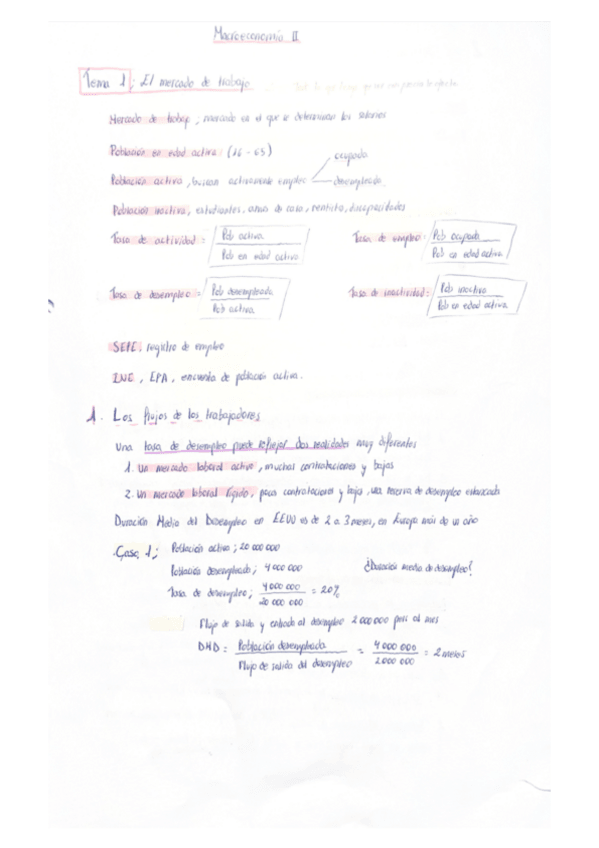 Macroeconomía II
Tema 1; El mercado de trabajo
Mercado de trabajo; mercado en el que se determinan los salarios
Población en edad activa: (16 - 65)
Población activa, buscan activamente empleo
ocupada
desempleada.
Población inactiva, estudiantes, amas de casa, rentista, discapacidades
Tasa de actividad: Pob activa / Pob en edad activa
Tasa de empleo: Pob ocupada / Pob en edad activa
Tasa de desempleo = Pob desempleada / Pob activa
Tasa de inactividad: Pob inactiva / Pob en edad activa
SEPE: registro de empleo
INE, EPA, encuesta de población activa.
1. Los flujos de los trabajadores
Una tasa de desempleo puede reflejar dos realidades muy diferentes
1. Un mercado laboral activo, muchas contrataciones y bajas
2. Un mercado laboral rígido, pocas contrataciones y bajas, una reserva de desempleo estancada
Duración Media del Desempleo en EEUU es de 2 a 3 meses, en Europa más de un año
Caso 1; Población activa; 20 000 000
Población desempleada; 4 000 000
¿Duración media de desempleo?
Tasa de desempleo; 4 000 000 / 20 000 000 = 20%
Flujo de salida y entrada al desempleo 2 000 000 pers al mes
DMD: Población desempleada / Flujo de salida del desempleo = 4 000 000 / 2 000 000 = 2 meses